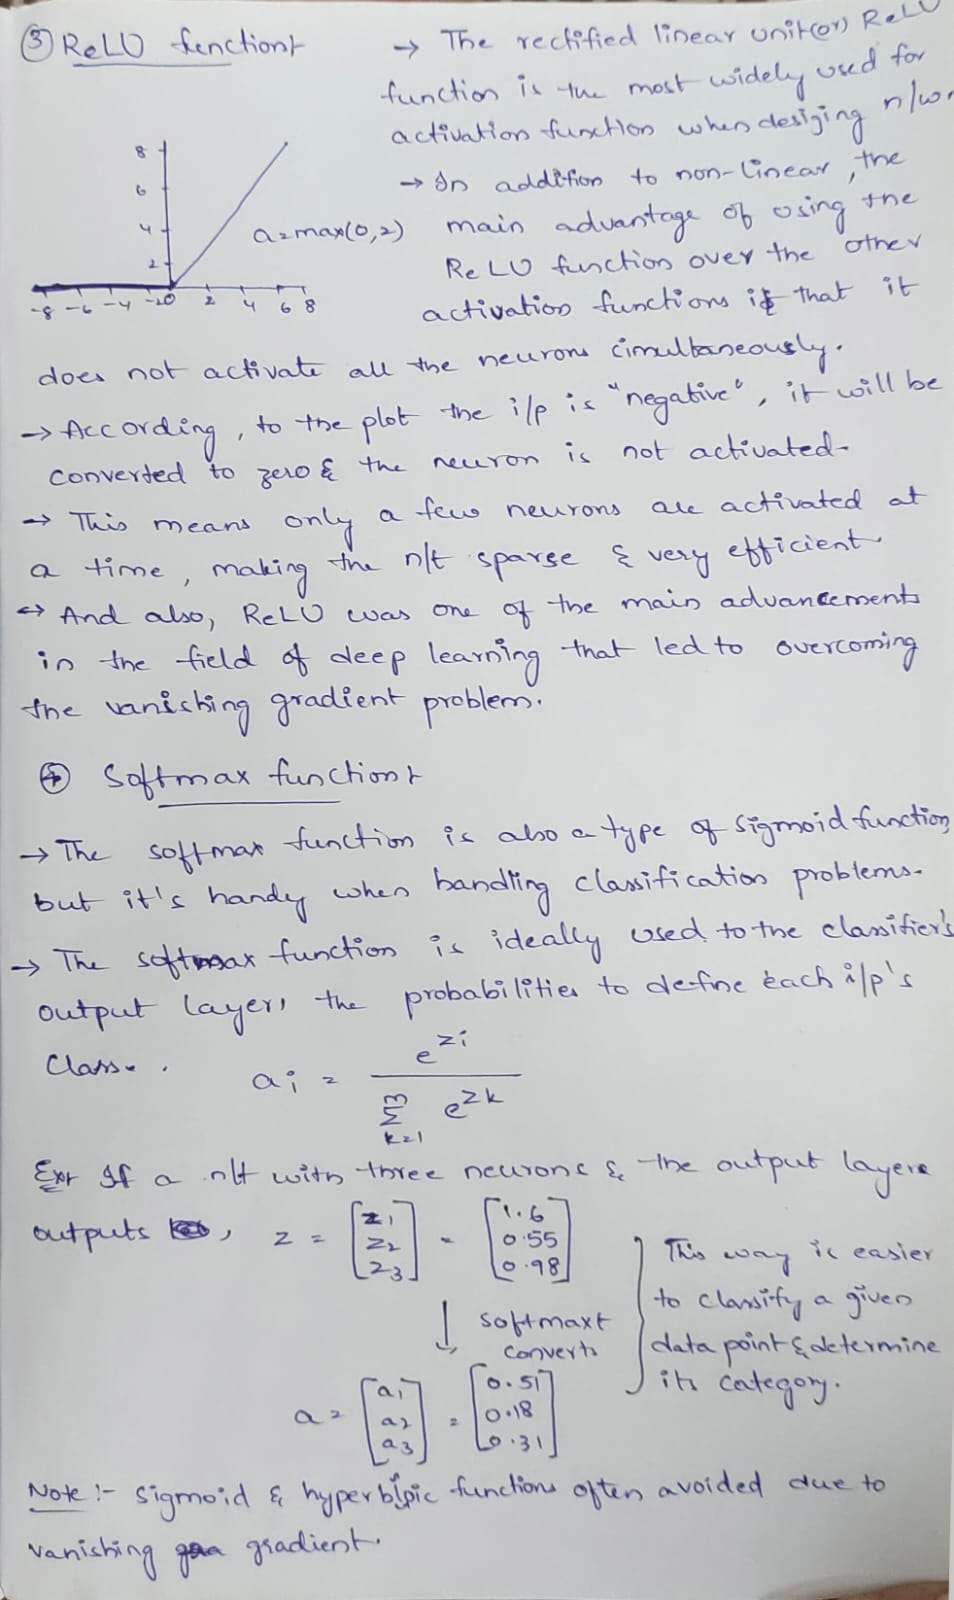 ③ ReLU function:
→ The rectified linear unit(or) ReLU
function is the most widely used for
activation function when desiging n/w.
→ In addition to non-linear, the
main advantage of using the
ReLU function over the other
activation functions is that it
8
6
4
2
a=max(0,z)
-8 -6 -4 -20 2 4 6 8
does not activate all the neurons cimultaneously.
→ According, to the plot the i/p is "negative", it will be
converted to zero & the neuron is not activated.
→ This means only a few neurons are activated at
a time, making the n/t sparse & very efficient.
→ And also, ReLU was one of the main advancements
in the field of deep learning that led to overcoming
the vanishing gradient problem.
④ Softmax function:
→ The softmax function is also a type of sigmoid function,
but it's handy when handling classification problems.
→ The softmax function is ideally used to the classifier's
output layer, the probabilities to define each i/p's
class.
aᵢ = e^zi / Σ_{k=1}^{m} e^zk
Ex: If a n/t with three neurons & the output layere
outputs , z = [z₁ z₂ z₃] = [1.6 0.55 0.98]
↓ softmax:
converts
a = [a₁ a₂ a₃] = [0.51 0.18 0.31]
This way is easier
to classify a given
data point & determine
its category.
Note :- Sigmoid & hyperblpic functions often avoided due to
vanishing gradient.